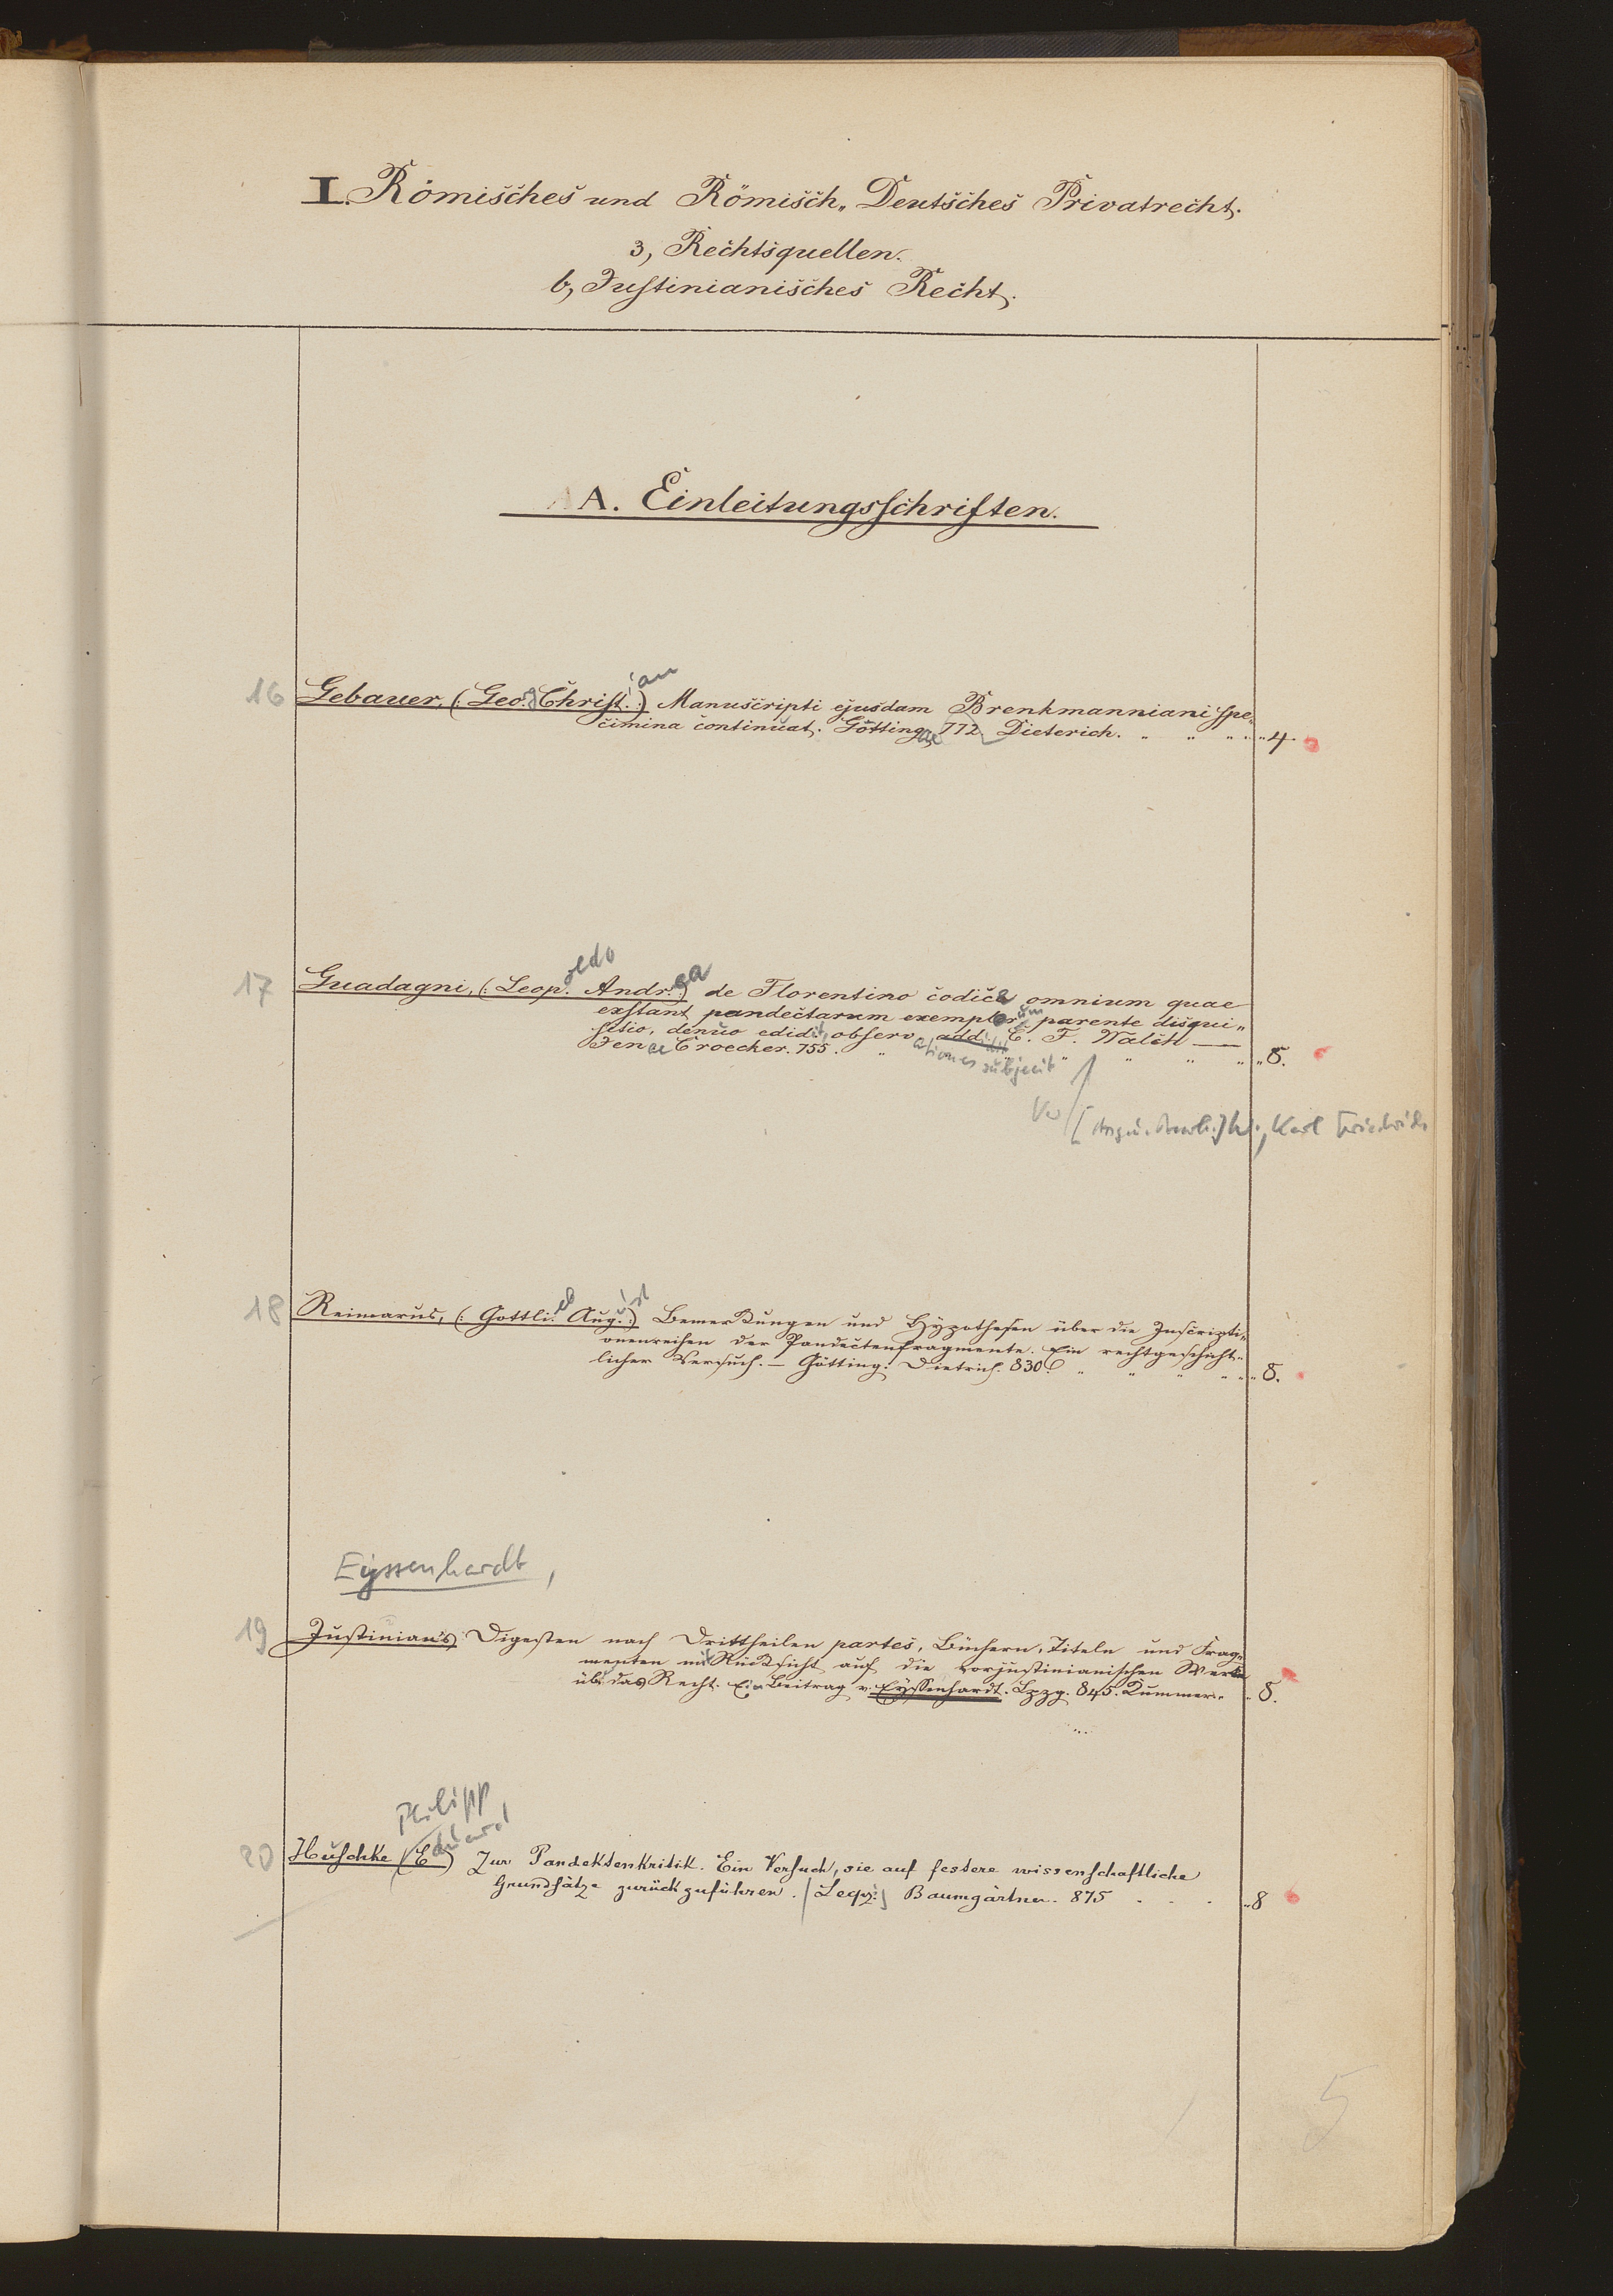 I. Römisches und Römisch„ Deutsches Privatrecht.
3, Rechtsquellen.
b, Justinianisches Recht.
A. Einleitungsschriften.
16 Gebauer, (: Geo. Christian :) Manuscripti ejusdam Brenkmanniani spe„
cimina continuat. Göttingae 772. Dieterich. „ „ „ „ „ 4.
17 Guadagni, (: Leopoldo Andrea :) de Florentino codice omnium quae
exstant pandectarum exemplorum parente disqui„
sitio, denuo edidit, observationes addidit subjecit C. F. Walch —
Jenae Croecker. 755. „ „ „ „ „ 8.
Karl Friedrich
18 Reimarus, (: Gottlieb August :) Bemerkungen und Hypothesen über die Inscripti„
onenreihen der Pandectenfragmente. Ein rechtgeschicht„
licher Versuch. — Götting. Dietrich. 830. „ „ „ „ „ 8.
Eyssenhardt,
19 Justinian's Digesten nach Drittheilen partes, Büchern, Titeln und Frag„
menten mit Rücksicht auf die vorjustinianischen Werke
üb. das Recht. Ein Beitrag v. Eyssenhardt. Lpzg. 845. Kummer. „ 8.
Philipp
20 Huschke (Eduard) Zur Pandektenkritik. Ein Versuch, sie auf festere wissenschaftliche
Grundsätze zurückzuführen. Leipz. Baumgärtner. 875 . . . „ 8
5